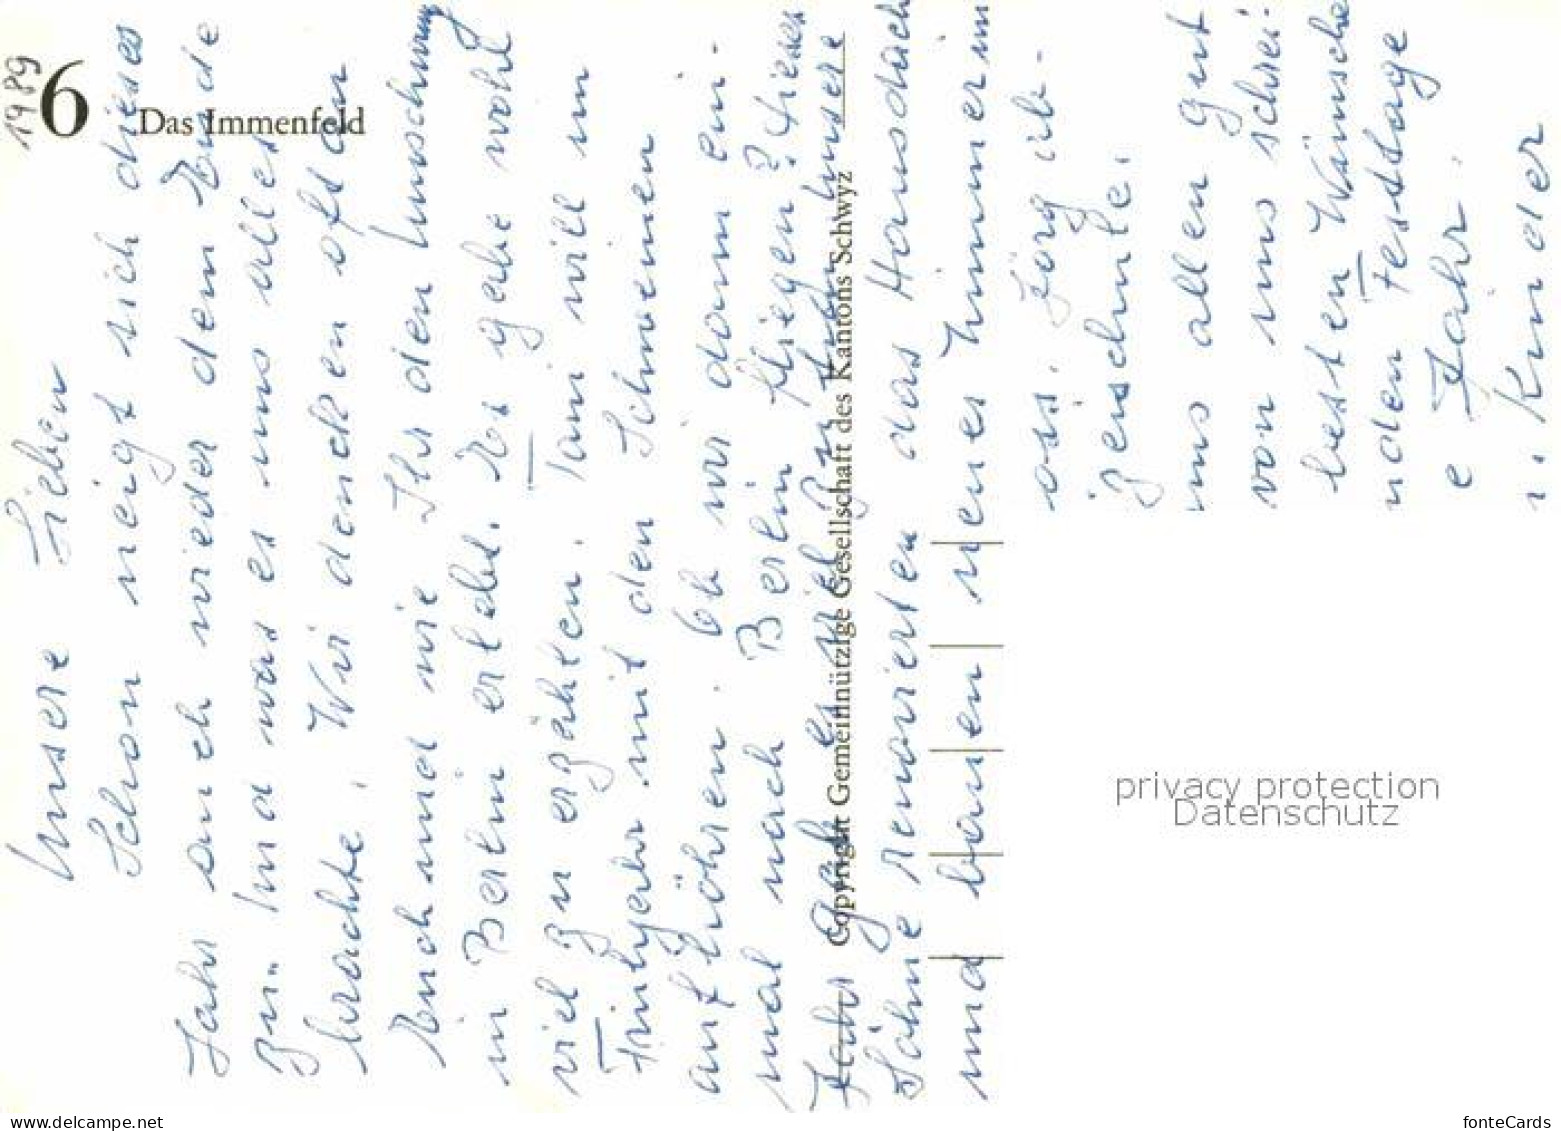 1989
6 Das Immenfeld
Unsere Lieben
Schon neigt sich dieses
Jahr auch wieder dem Ende
zu. Und was es uns alles
brachte. Wir denken oft an
Euch und wie Ihr den Umschwung
in Berlin erlebt. Es gäbe wohl
viel zu erzählen. Toni will im
Frühjahr mit den Schweinen
aufhöhren. Ob wir dann ein-
mal nach Berlin fliegen? Dieses
Jahr gab es viel zu tun unsere
Söhne renovierten das Hausdach
und bauen neues Zimmer im
oss. Jörg ü
zenschule.
uns allen gut
von uns schrei
besten Wünsche
nden Festtage
e Jahr.
u. Kinder
Copyright Gemeinnützige Gesellschaft des Kantons Schwyz
privacy protection
Datenschutz
www.ansichtskartenversand.com
fonteCards